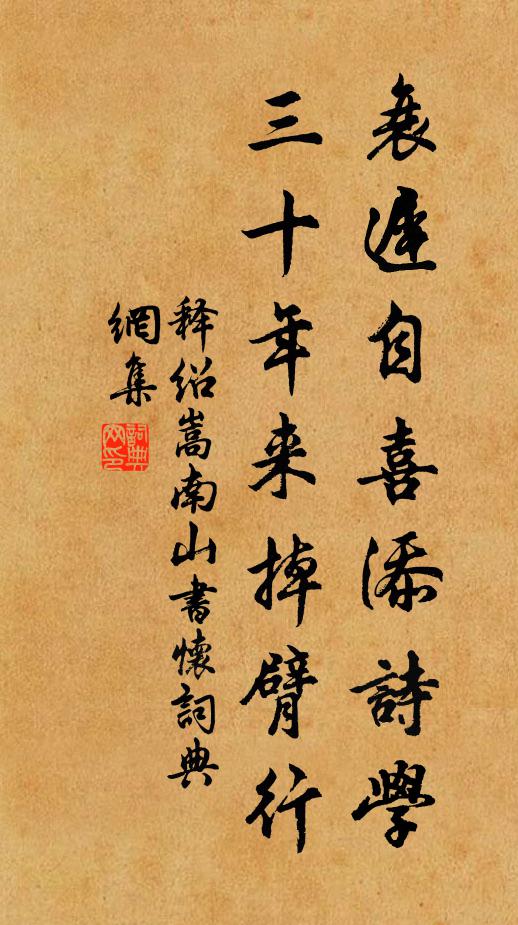 衰遲自喜添詩學
三十年来掉臂行
释紹嵩南山書懷詞典
網集
詞典
网印